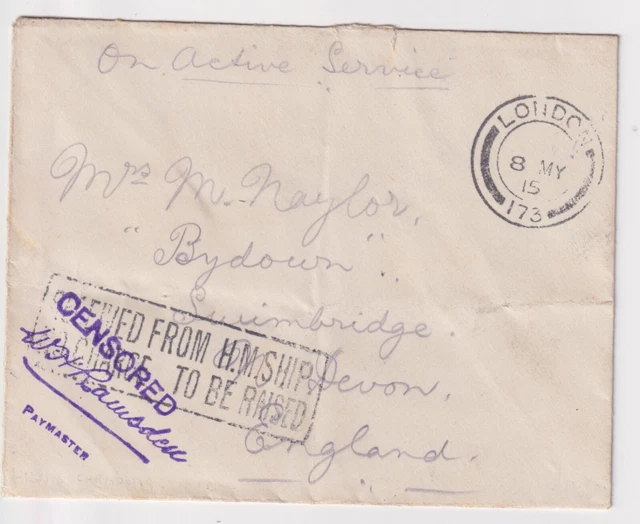 On Active Service
LONDON
8 MY
15
173
Mrs M. Naylor,
"Bydown".
Swimbridge.
Devon,
England.
RECEIVED FROM H.M. SHIP
NO CHARGE TO BE RAISED
CENSORED
Ramsden
PAYMASTER